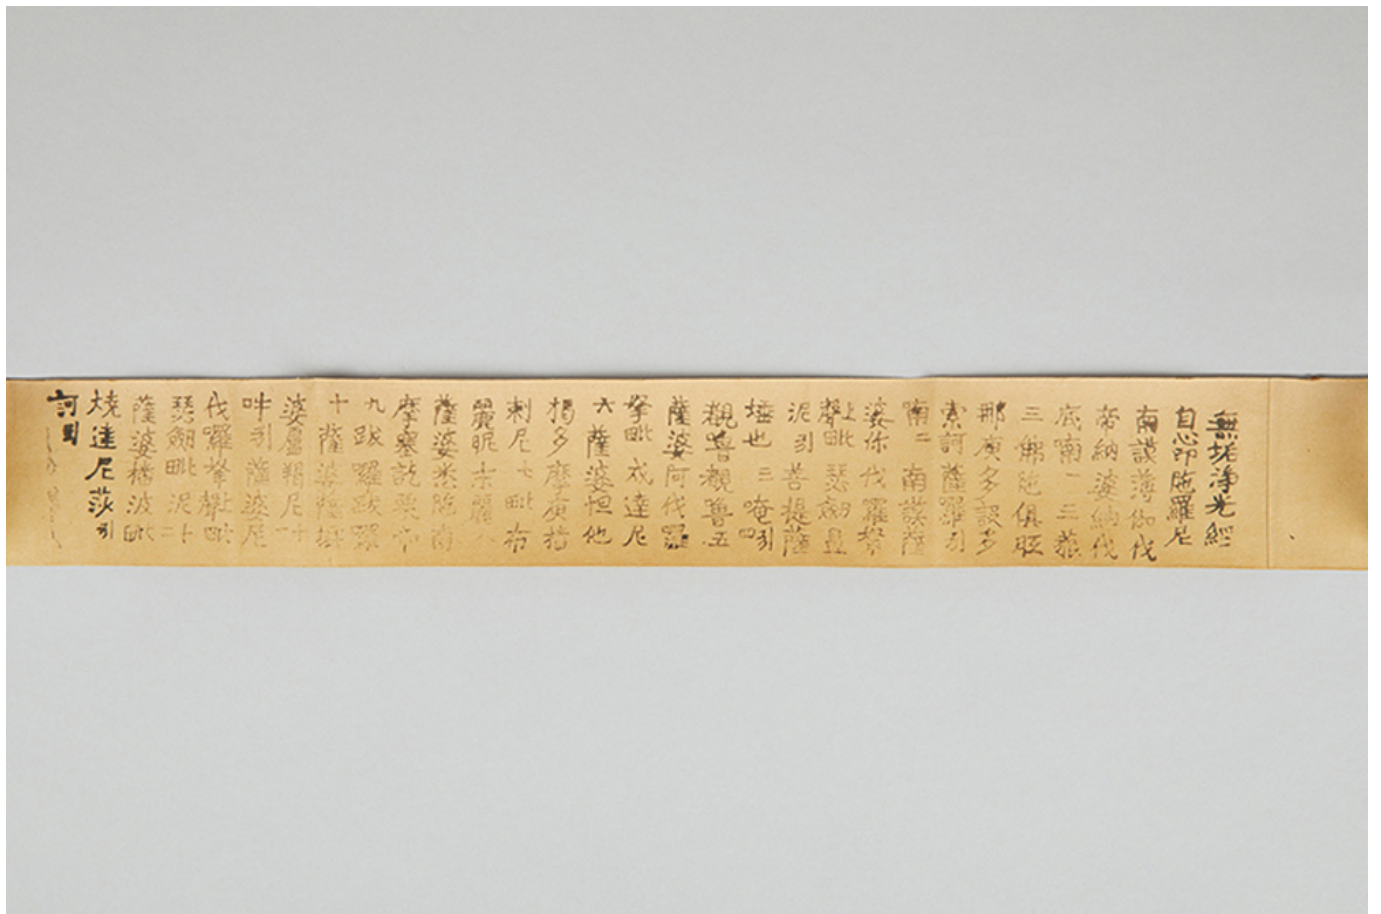 無垢淨光經
自心印陁羅尼
南謨薄伽伐
帝納婆納伐
底喃一三藐
三佛陁俱胝
那庾多設多
索訶薩羅引
喃二南謨薩
婆你伐羅拏
上聲毗瑟劔
泥引菩提薩
埵也三唵引四
覩嚕覩嚕五
薩婆阿伐羅
拏毗戍達尼
六薩婆怛他
揭多摩庾播
刺尼七毗布
麗昵末麗八
薩婆悉陁南
摩塞訖栗帝
九跋羅跋羅
十薩婆薩埵
婆盧羯尼十一
吽引薩婆尼
伐囉拏上聲毗
瑟劔毗泥十二
薩婆播波毗
燒達尼莎引
訶引